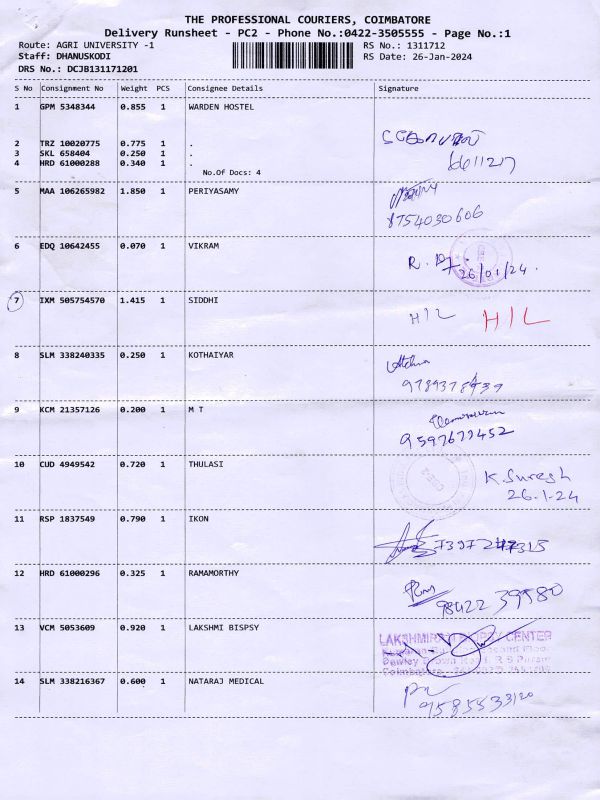 THE PROFESSIONAL COURIERS, COIMBATORE
Delivery Runsheet - PC2 - Phone No.:0422-3505555 - Page No.:1
Route: AGRI UNIVERSITY -1
RS No.: 1311712
Staff: DHANUSKODI
RS Date: 26-Jan-2024
DRS No.: DCJB131171201
S No Consignment No Weight PCS Consignee Details Signature
1 GPM 5348344 0.855 1 WARDEN HOSTEL
2 TRZ 10020775 0.775 1 .
3 SKL 658404 0.250 1 .
4 HRD 61000288 0.340 1 .
No.Of Docs: 4
5 MAA 106265982 1.850 1 PERIYASAMY
8754030606
6 EDQ 10642455 0.070 1 VIKRAM
26/01/24.
7 IXM 505754570 1.415 1 SIDDHI H/L H/L
8 SLM 338240335 0.250 1 KOTHAIYAR
9 KCM 21357126 0.200 1 M T
9597677452
10 CUD 4949542 0.720 1 THULASI
K. Suresh
26.1.24
11 RSP 1837549 0.790 1 IKON
12 HRD 61000296 0.325 1 RAMAMORTHY
98422 39980
13 VCM 5053609 0.920 1 LAKSHMI BISPSY
14 SLM 338216367 0.600 1 NATARAJ MEDICAL
9585533120